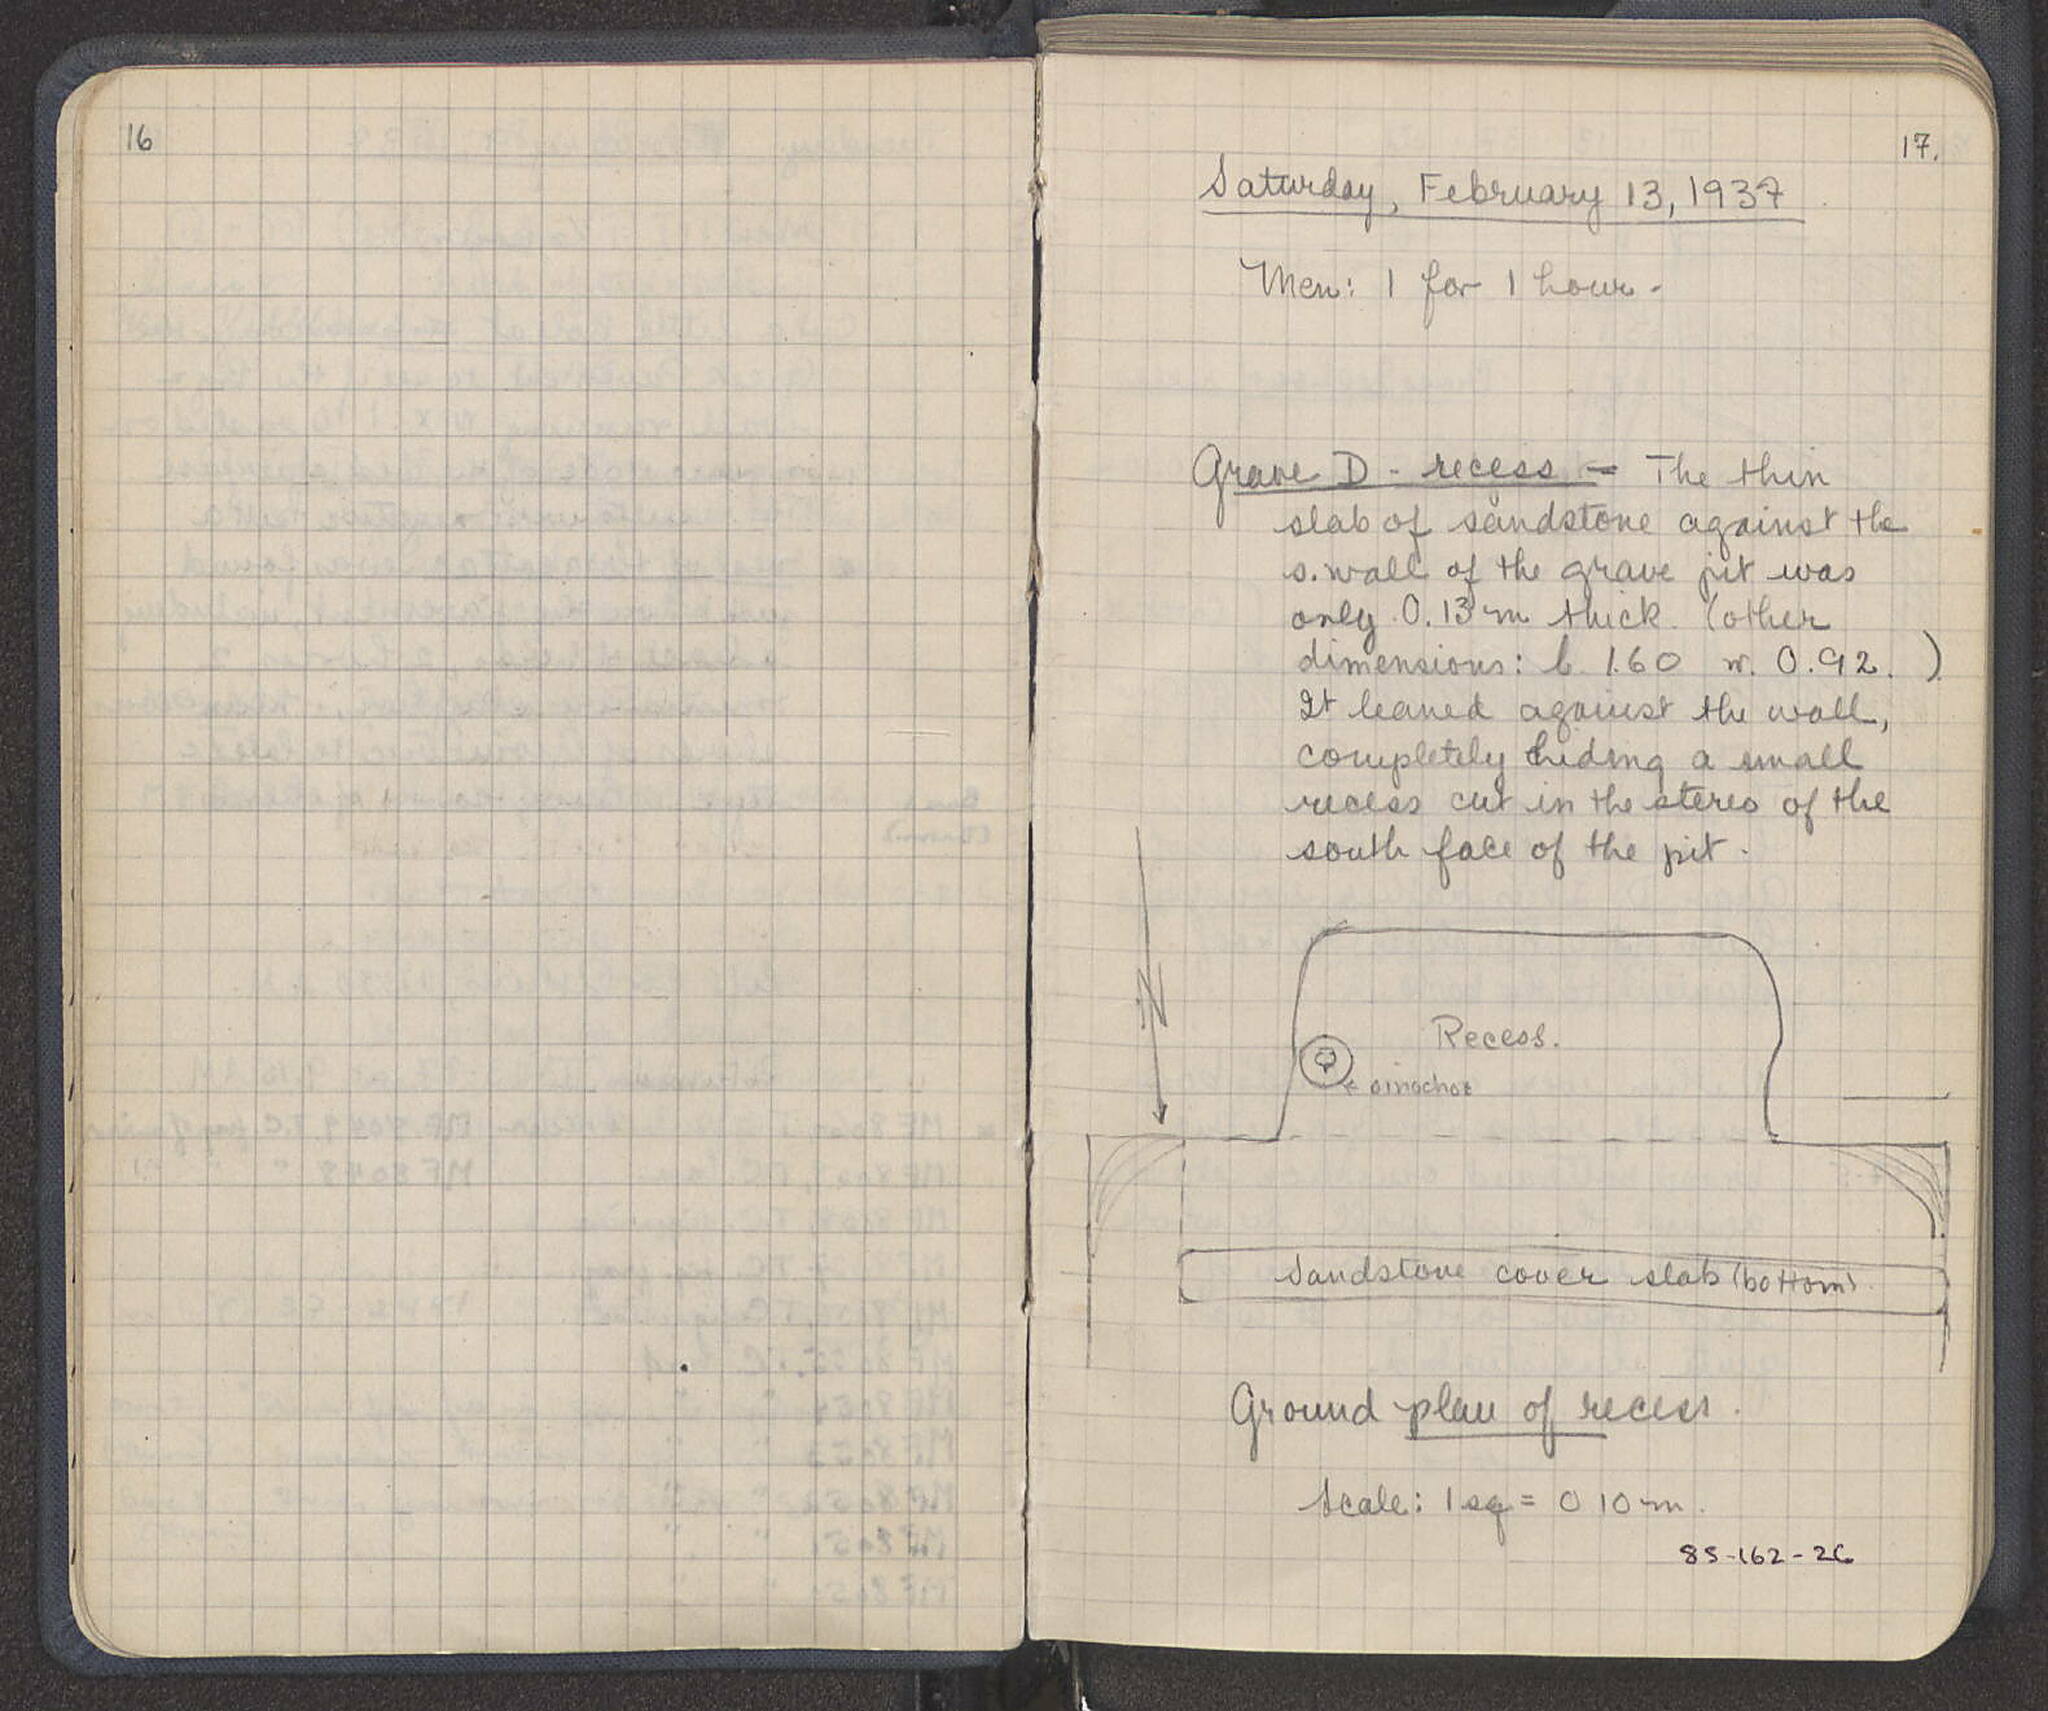 16
17.
Saturday, February 13, 1937
Men: 1 for 1 hour.
Grave D - recess - The thin
slab of sandstone against the
s. wall of the grave pit was
only 0.13 m thick. (other
dimensions: l. 1.60 w. 0.92. )
It leaned against the wall,
completely hiding a small
recess cut in the stereo of the
south face of the pit.
N
Recess.
oinochoe
Sandstone cover slab (bottom).
Ground plan of recess.
Scale: 1 sq = 0 10 m.
85-162-26